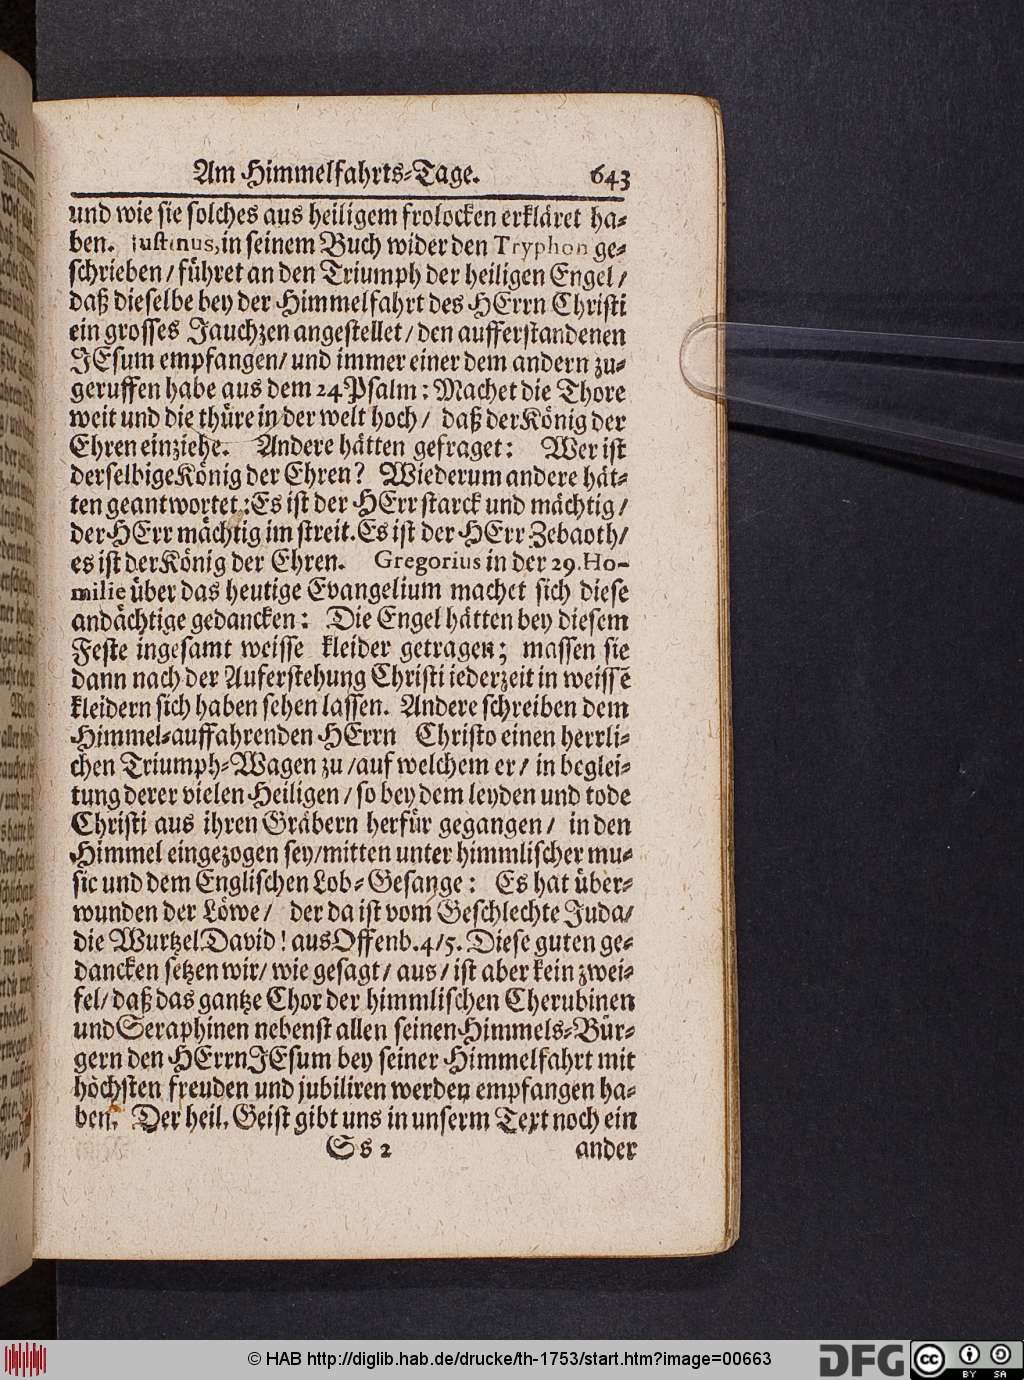 Am Himmelfahrts-Tage. 643
und wie sie solches aus heiligem frolocken erkläret ha-
ben. Justinus, in seinem Buch wider den Tryphon ge-
schrieben / führet an den Triumph der heiligen Engel /
daß dieselbe bey der Himmelfahrt des HErrn Christi
ein grosses Jauchzen angestellet / den aufferstandenen
JEsum empfangen / und immer einer dem andern zu-
geruffen habe aus dem 24 Psalm: Machet die Thore
weit und die thüre in der welt hoch / daß der König der
Ehren einziehe. Andere hätten gefraget: Wer ist
derselbige König der Ehren? Wiederum andere hät-
ten geantwortet: Es ist der HErr starck und mächtig /
der HErr mächtig im streit. Es ist der HErr Zebaoth /
es ist der König der Ehren. Gregorius in der 29. Ho-
milie über das heutige Evangelium machet sich diese
andächtige gedancken: Die Engel hätten bey diesem
Feste ingesamt weisse kleider getragen; massen sie
dann nach der Auferstehung Christi iederzeit in weissē
kleidern sich haben sehen lassen. Andere schreiben dem
Himmel-auffahrenden HErrn Christo einen herrli-
chen Triumph-Wagen zu / auf welchem er / in beglei-
tung derer vielen Heiligen / so bey dem leyden und tode
Christi aus ihren Gräbern herfür gegangen / in den
Himmel eingezogen sey / mitten unter himmlischer mu-
sic und dem Englischen Lob-Gesange: Es hat über-
wunden der Löwe / der da ist vom Geschlechte Juda /
die Wurtzel David! aus Offenb. 4/5. Diese guten ge-
dancken setzen wir / wie gesagt / aus / ist aber kein zwei-
fel / daß das gantze Chor der himmlischen Cherubinen
und Seraphinen nebenst allen seinen Himmels-Bür-
gern den HErrn JEsum bey seiner Himmelfahrt mit
höchsten freuden und jubiliren werden empfangen ha-
ben. Der heil. Geist gibt uns in unserm Text noch ein
Ss 2 ander
© HAB http://diglib.hab.de/drucke/th-1753/start.htm?image=00663
DFG
cc BY SA